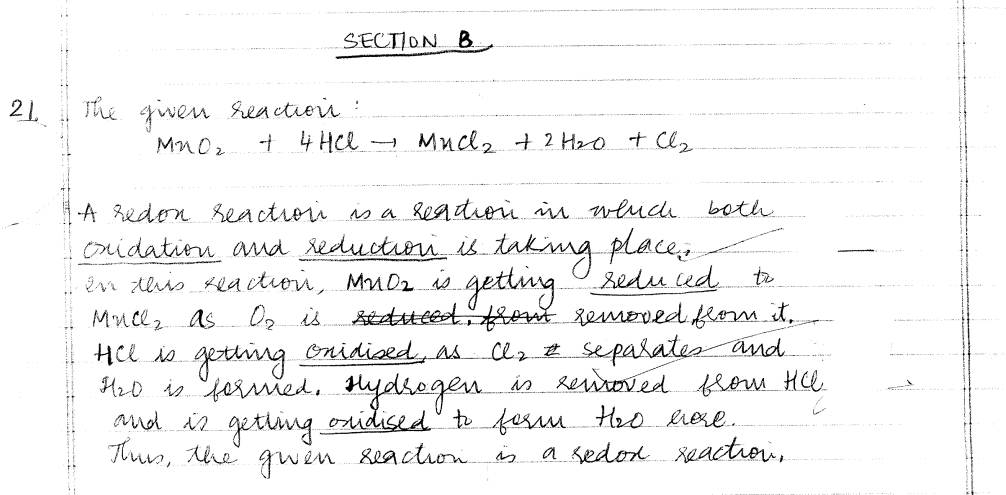 SECTION B
21. The given reaction :
MnO₂ + 4HCl → MnCl₂ + 2H₂O + Cl₂
A redox reaction is a reaction in which both
oxidation and reduction is taking place.
In this reaction, MnO₂ is getting reduced to
MnCl₂ as O₂ is reduced. from removed from it.
HCl is getting oxidised, as Cl₂ separates and
H₂O is formed. Hydrogen is removed from HCl
and is getting oxidised to form H₂O here.
Thus, the given reaction is a redox reaction.